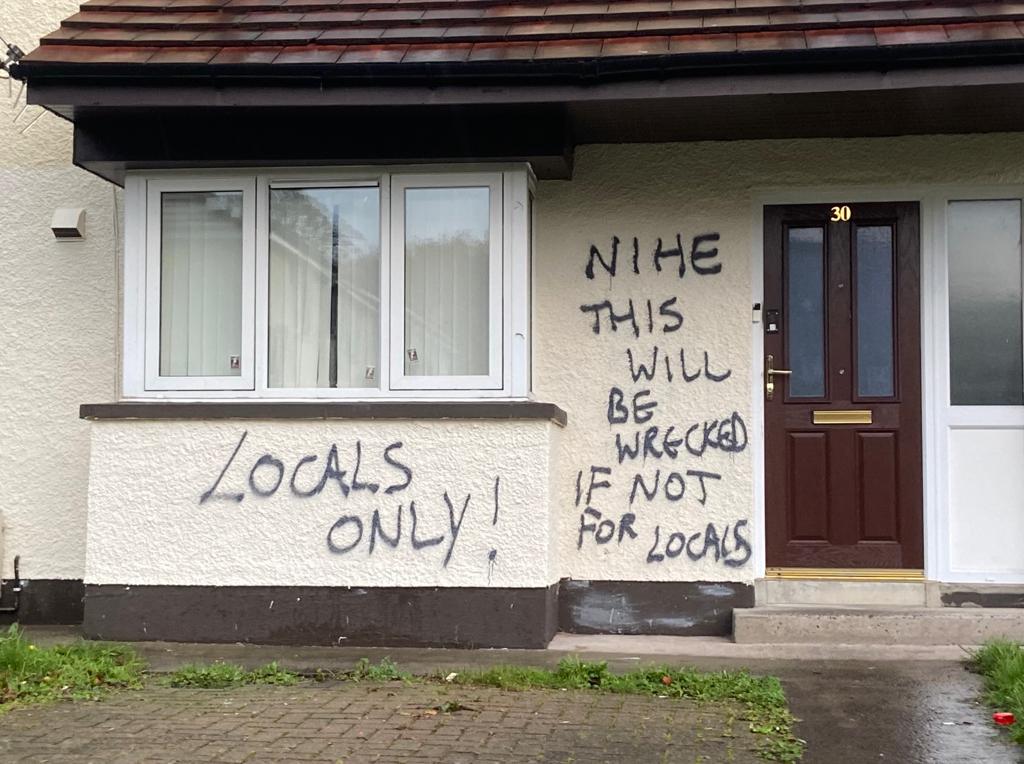 30
NIHE
THIS
WILL
BE
WRECKED
IF NOT
FOR LOCALS
LOCALS
ONLY!